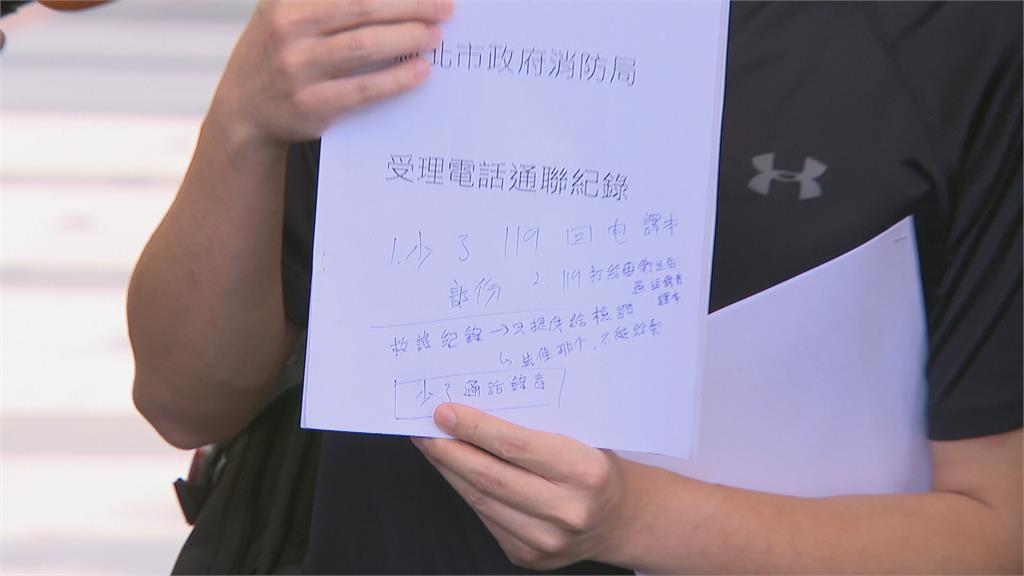 北市政府消防局
受理電話通聯紀錄
1.少了 119 回電 譯本
部份 2. 119 打給衛生局
通話錄音
譯本
救護紀錄→只提供給檢調
少了通話錄音